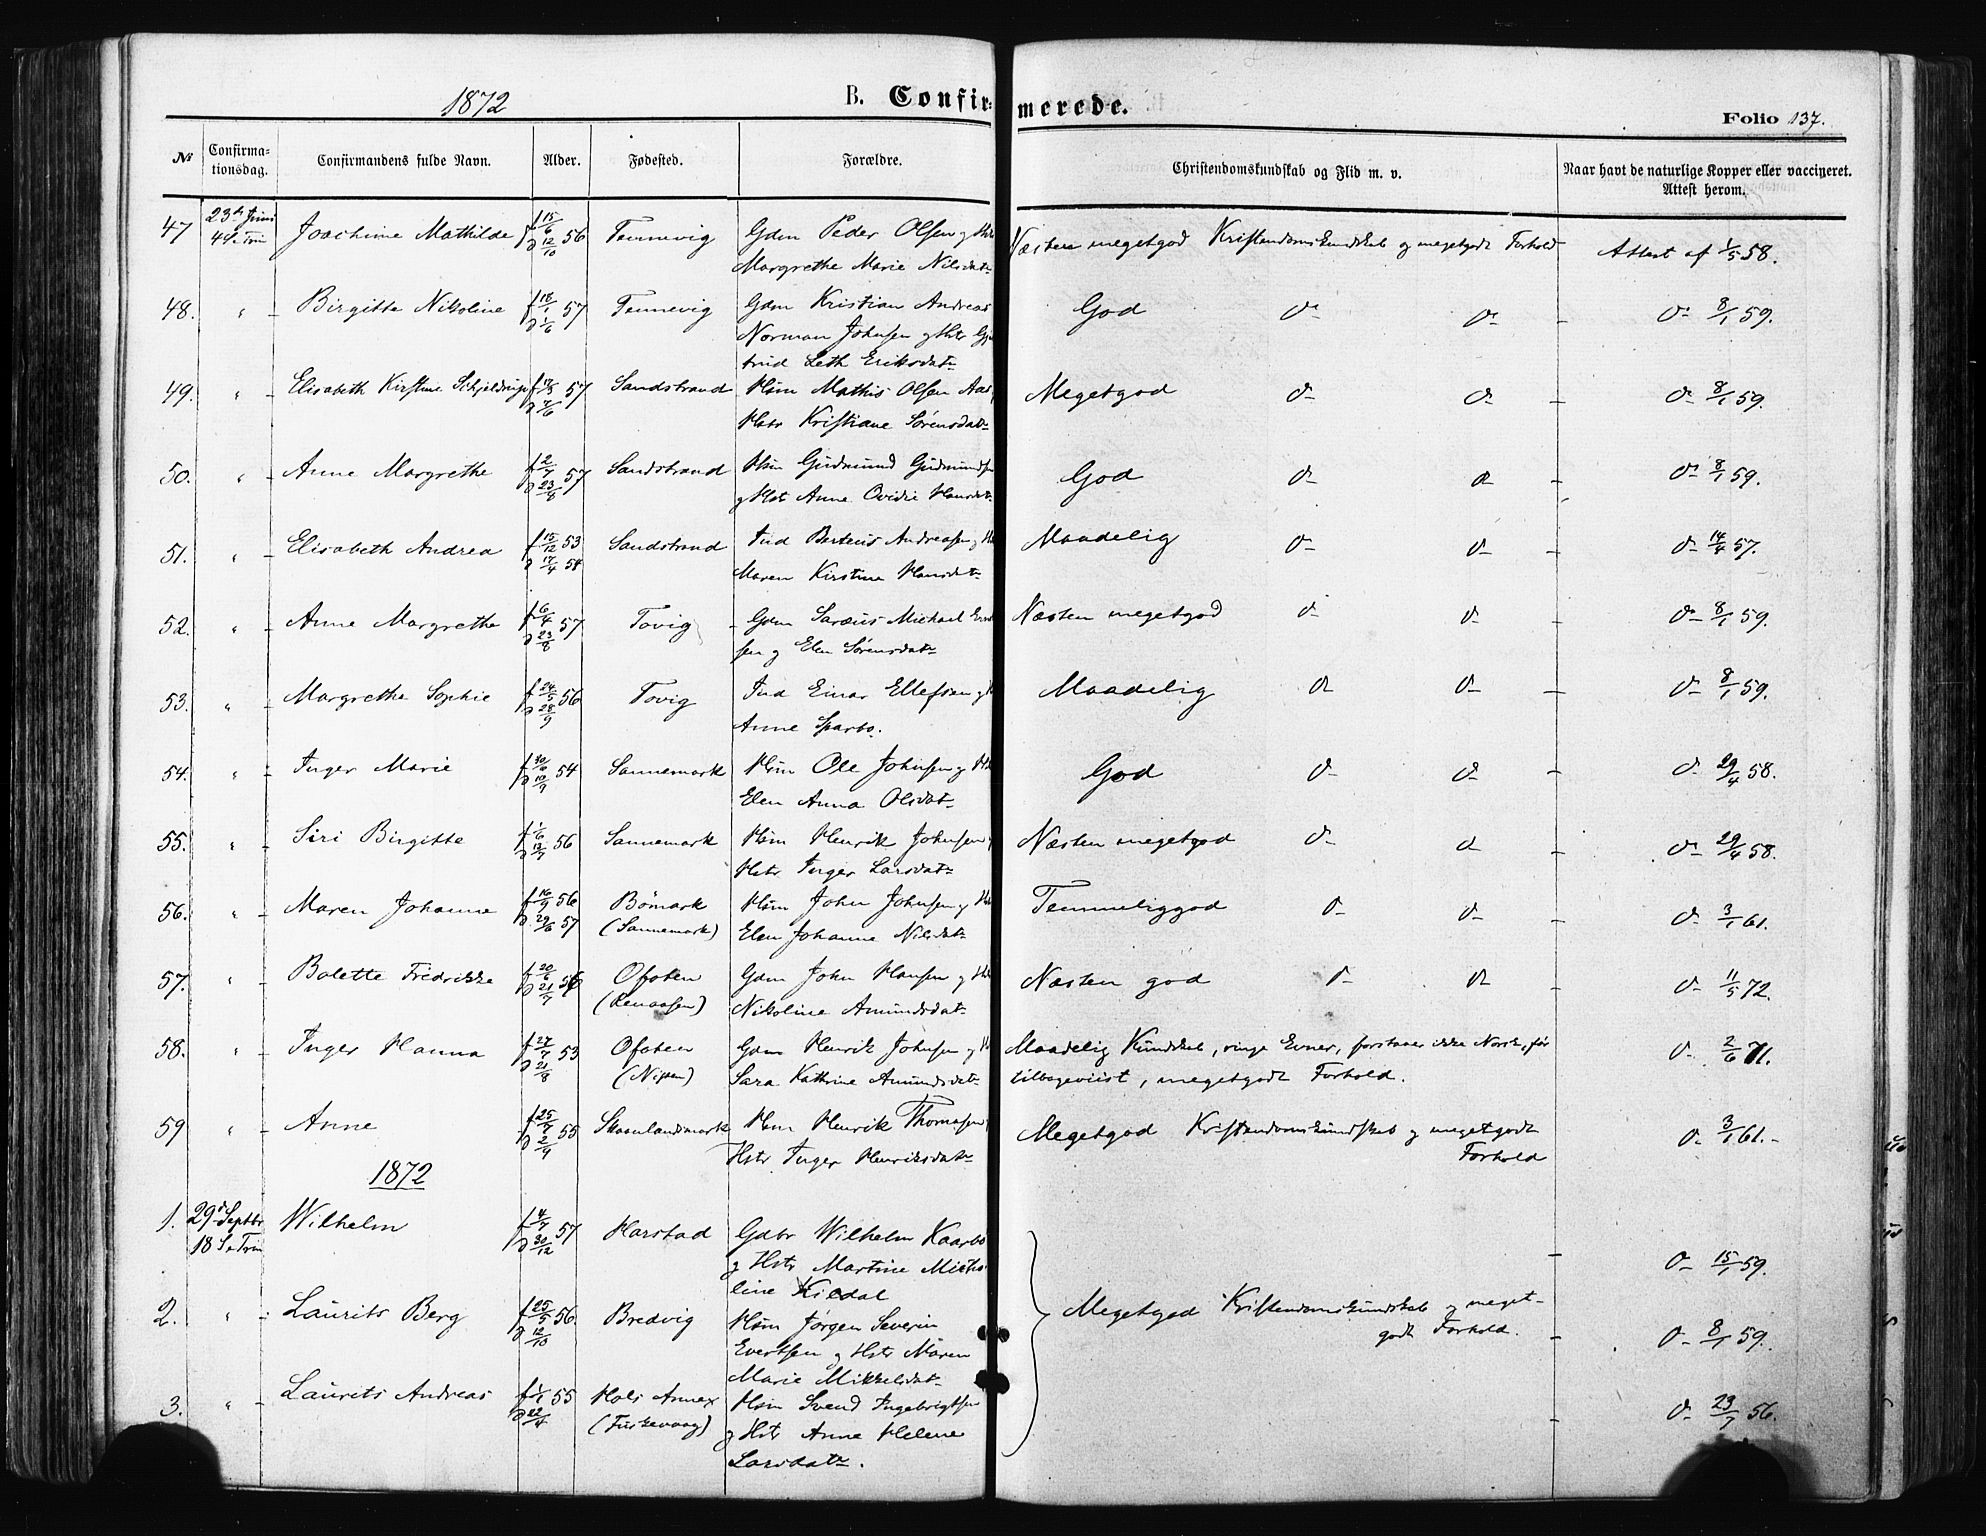 1872
B. Confirmerede.
Folio 137.
№ Confirmationsdag. Confirmandens fulde Navn. Alder. Fødested. Forældre. Christendomskundskab og Flid m. v. Naar havt de naturlige Kopper eller vaccineret. Attest herom.
47 23de Juni 4 S. e. Trin Joachime Mathilde f 15/6 d 12/10 56 Tennevig Gdm Peder Olsen og Næsten megetgod Kristendomskundskab og megetgodt Forhold Attest af 1/5 58.
Margrethe Marie Nilsdatr
48. " Birgitte Nikoline f 18/1 d 1/6 57 Tennevig Gdm Kristian Andreas God d- d- d- 8/1 59.
Norman Johnsen og Hstr Gjertrud Leth Eriksdatr
49. " Elisabeth Kirstine Schjeldrup 57 Sandstrand Hsm Mathis Olsen Megetgod d- d- d- 8/1 59.
Hstr Kristiane Sørensdatr
50. " Anne Margrethe f 2/7 d 23/8 57 Sandstrand Hsm Gudmund Gudmundsen God d- d- d- 8/1 59.
og Hst Anne Ovidie Hansdatr
51. " Elisabeth Andrea f 15/12 53 d 17/4 54 Sandstrand Ind Berteus Andreasen og Maadelig d- d- d- 14/4 57.
Maren Kirstine Hansdatr
52. " Anne Margrethe f 6/4 d 23/8 57 Tovig Gdm Saræus Michael Næsten megetgod d- d- d- 8/1 59.
sen og Elen Sørensdatr
53. " Margrethe Sophie f 24/5 d 28/9 56 Tovig Ind Einar Ellefsen og Maadelig d- d- d- 8/1 59.
Anne Sparbo.
54. " Inger Marie 54 Sannemark Hsm Ole Johnsen og God d- d- d- 29/4 58.
Elen Anna Olsdatr
55. " Siri Birgitte f 1/6 d 13/7 56 Sannemark Hsm Henrik Johnsen Næsten megetgod d- d- d- 29/4 58.
Hstr Inger Larsdatr
56. " Maren Johanne f 16/9 56 d 29/6 57 Bömark Hsm John Johnsen og Temmeliggod d- d- d- 3/1 61.
(Sannemark) Elen Johanne Nilsdatr
57. " Bolette Fredrikke f 20/6 d 21/7 56 Ofoten Gdm John Hansen og Næsten god d- d- d- 11/5 72.
(Lenaasen) Nikoline Amundsdatr
58. " Inger Hanna f 27/7 d 21/8 53 Ofoten Gdm Henrik Johnsen og Maadelig Kundskab, ringe Evner, forstaaer ikke Norsk, før d- 2/6 71.
Sara Kathrine Amundsdatr tilbageviist, megetgodt Forhold.
59 " Anne f 25/7 d 2/9 55 Skaanlandsmark Hsm Henrik Thomasen Megetgod Kristendomskundskab og megetgodt d- 3/1 61.-
Hstr Inger Henriksdatr Forhold
1872
1. 29de Septbr 18 S. e. Trin Wilhelm f 4/7 d 30/12 57 Harstad Gdbr Wilhelm Kaarbø d- 15/1 59.
og Hstr Martine Nicoline Kildal
2. " Laurits Berg f 25/5 d 12/10 56. Bredvig Hsm Jørgen Severin Megetgod Kristendomskundskab og meget- d- 8/1 59.
Evertsen og Hstr Maren godt Forhold.
Marie Mikkelsdatr
3. " Laurits Andreas 55 Hols Annex Hsm Svend Ingebrigtsen d- 23/7 56.
(Fiskevaag) og Hstr Anne Helene
Larsdatr.